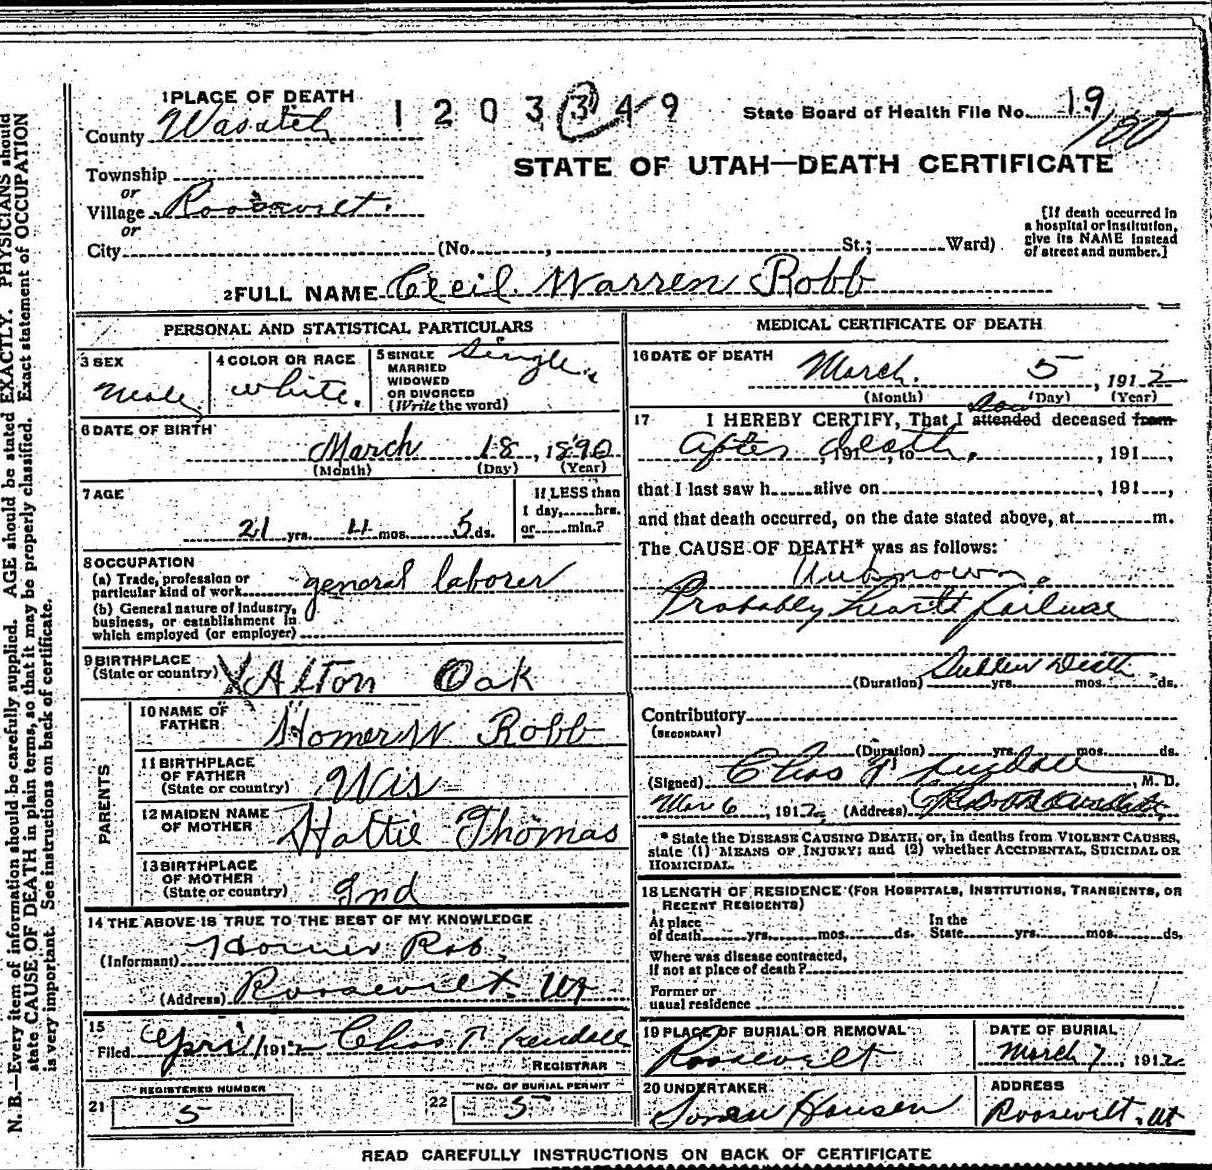 N. B.—Every item of information should be carefully supplied. AGE should be stated EXACTLY. PHYSICIANS should
state CAUSE OF DEATH in plain terms, so that it may be properly classified. Exact statement of OCCUPATION
is very important. See instructions on back of certificate.
1 PLACE OF DEATH
1203349
State Board of Health File No. 19
County Wasatch
STATE OF UTAH—DEATH CERTIFICATE
Township
or
Village Roosevelt.
or
City (No. , St.; Ward)
[If death occurred in
a hospital or institution,
give its NAME instead
of street and number.]
2 FULL NAME Cecil Warren Robb
PERSONAL AND STATISTICAL PARTICULARS
3 SEX
Male
4 COLOR OR RACE
white.
5 SINGLE
MARRIED
WIDOWED
OR DIVORCED
(Write the word)
Single.
6 DATE OF BIRTH
March 18, 1890
(Month) (Day) (Year)
7 AGE
21 yrs. 11 mos. 5 ds.
If LESS than
1 day, hrs.
or min.?
8 OCCUPATION
(a) Trade, profession or
particular kind of work general laborer
(b) General nature of industry,
business, or establishment in
which employed (or employer)
9 BIRTHPLACE
(State or country) Alton Oak
PARENTS
10 NAME OF
FATHER Homer W Robb
11 BIRTHPLACE
OF FATHER
(State or country) Wis
12 MAIDEN NAME
OF MOTHER Hattie Thomas
13 BIRTHPLACE
OF MOTHER
(State or country) Ind
14 THE ABOVE IS TRUE TO THE BEST OF MY KNOWLEDGE
(Informant) Homer Rob
(Address) Roosevelt. Ut
15
Filed April 1 1912 Chas T. Kendall
REGISTRAR
REGISTERED NUMBER
21 5
NO. OF BURIAL PERMIT
22 5
MEDICAL CERTIFICATE OF DEATH
16 DATE OF DEATH
March. 5, 1912
(Month) (Day) (Year)
17 I HEREBY CERTIFY, That I attended saw deceased from
After death. , 191 , to , 191 ,
that I last saw h alive on , 191 ,
and that death occurred, on the date stated above, at m.
The CAUSE OF DEATH* was as follows:
Unknown.
Probably heart failure
Sudden Death
(Duration) yrs. mos. ds.
Contributory
(SECONDARY)
(Duration) yrs. mos. ds.
(Signed) Chas M. D.
Mar 6, 1912 (Address)
* State the DISEASE CAUSING DEATH, or, in deaths from VIOLENT CAUSES,
state (1) MEANS OF INJURY; and (2) whether ACCIDENTAL, SUICIDAL OR
HOMICIDAL.
18 LENGTH OF RESIDENCE (FOR HOSPITALS, INSTITUTIONS, TRANSIENTS, OR
RECENT RESIDENTS)
At place
of death yrs. mos. ds.
In the
State yrs. mos. ds.
Where was disease contracted,
if not at place of death?
Former or
usual residence
19 PLACE OF BURIAL OR REMOVAL
Roosevelt
DATE OF BURIAL
March 7, 1912
20 UNDERTAKER
Soren Hansen
ADDRESS
Roosevelt. Ut
READ CAREFULLY INSTRUCTIONS ON BACK OF CERTIFICATE